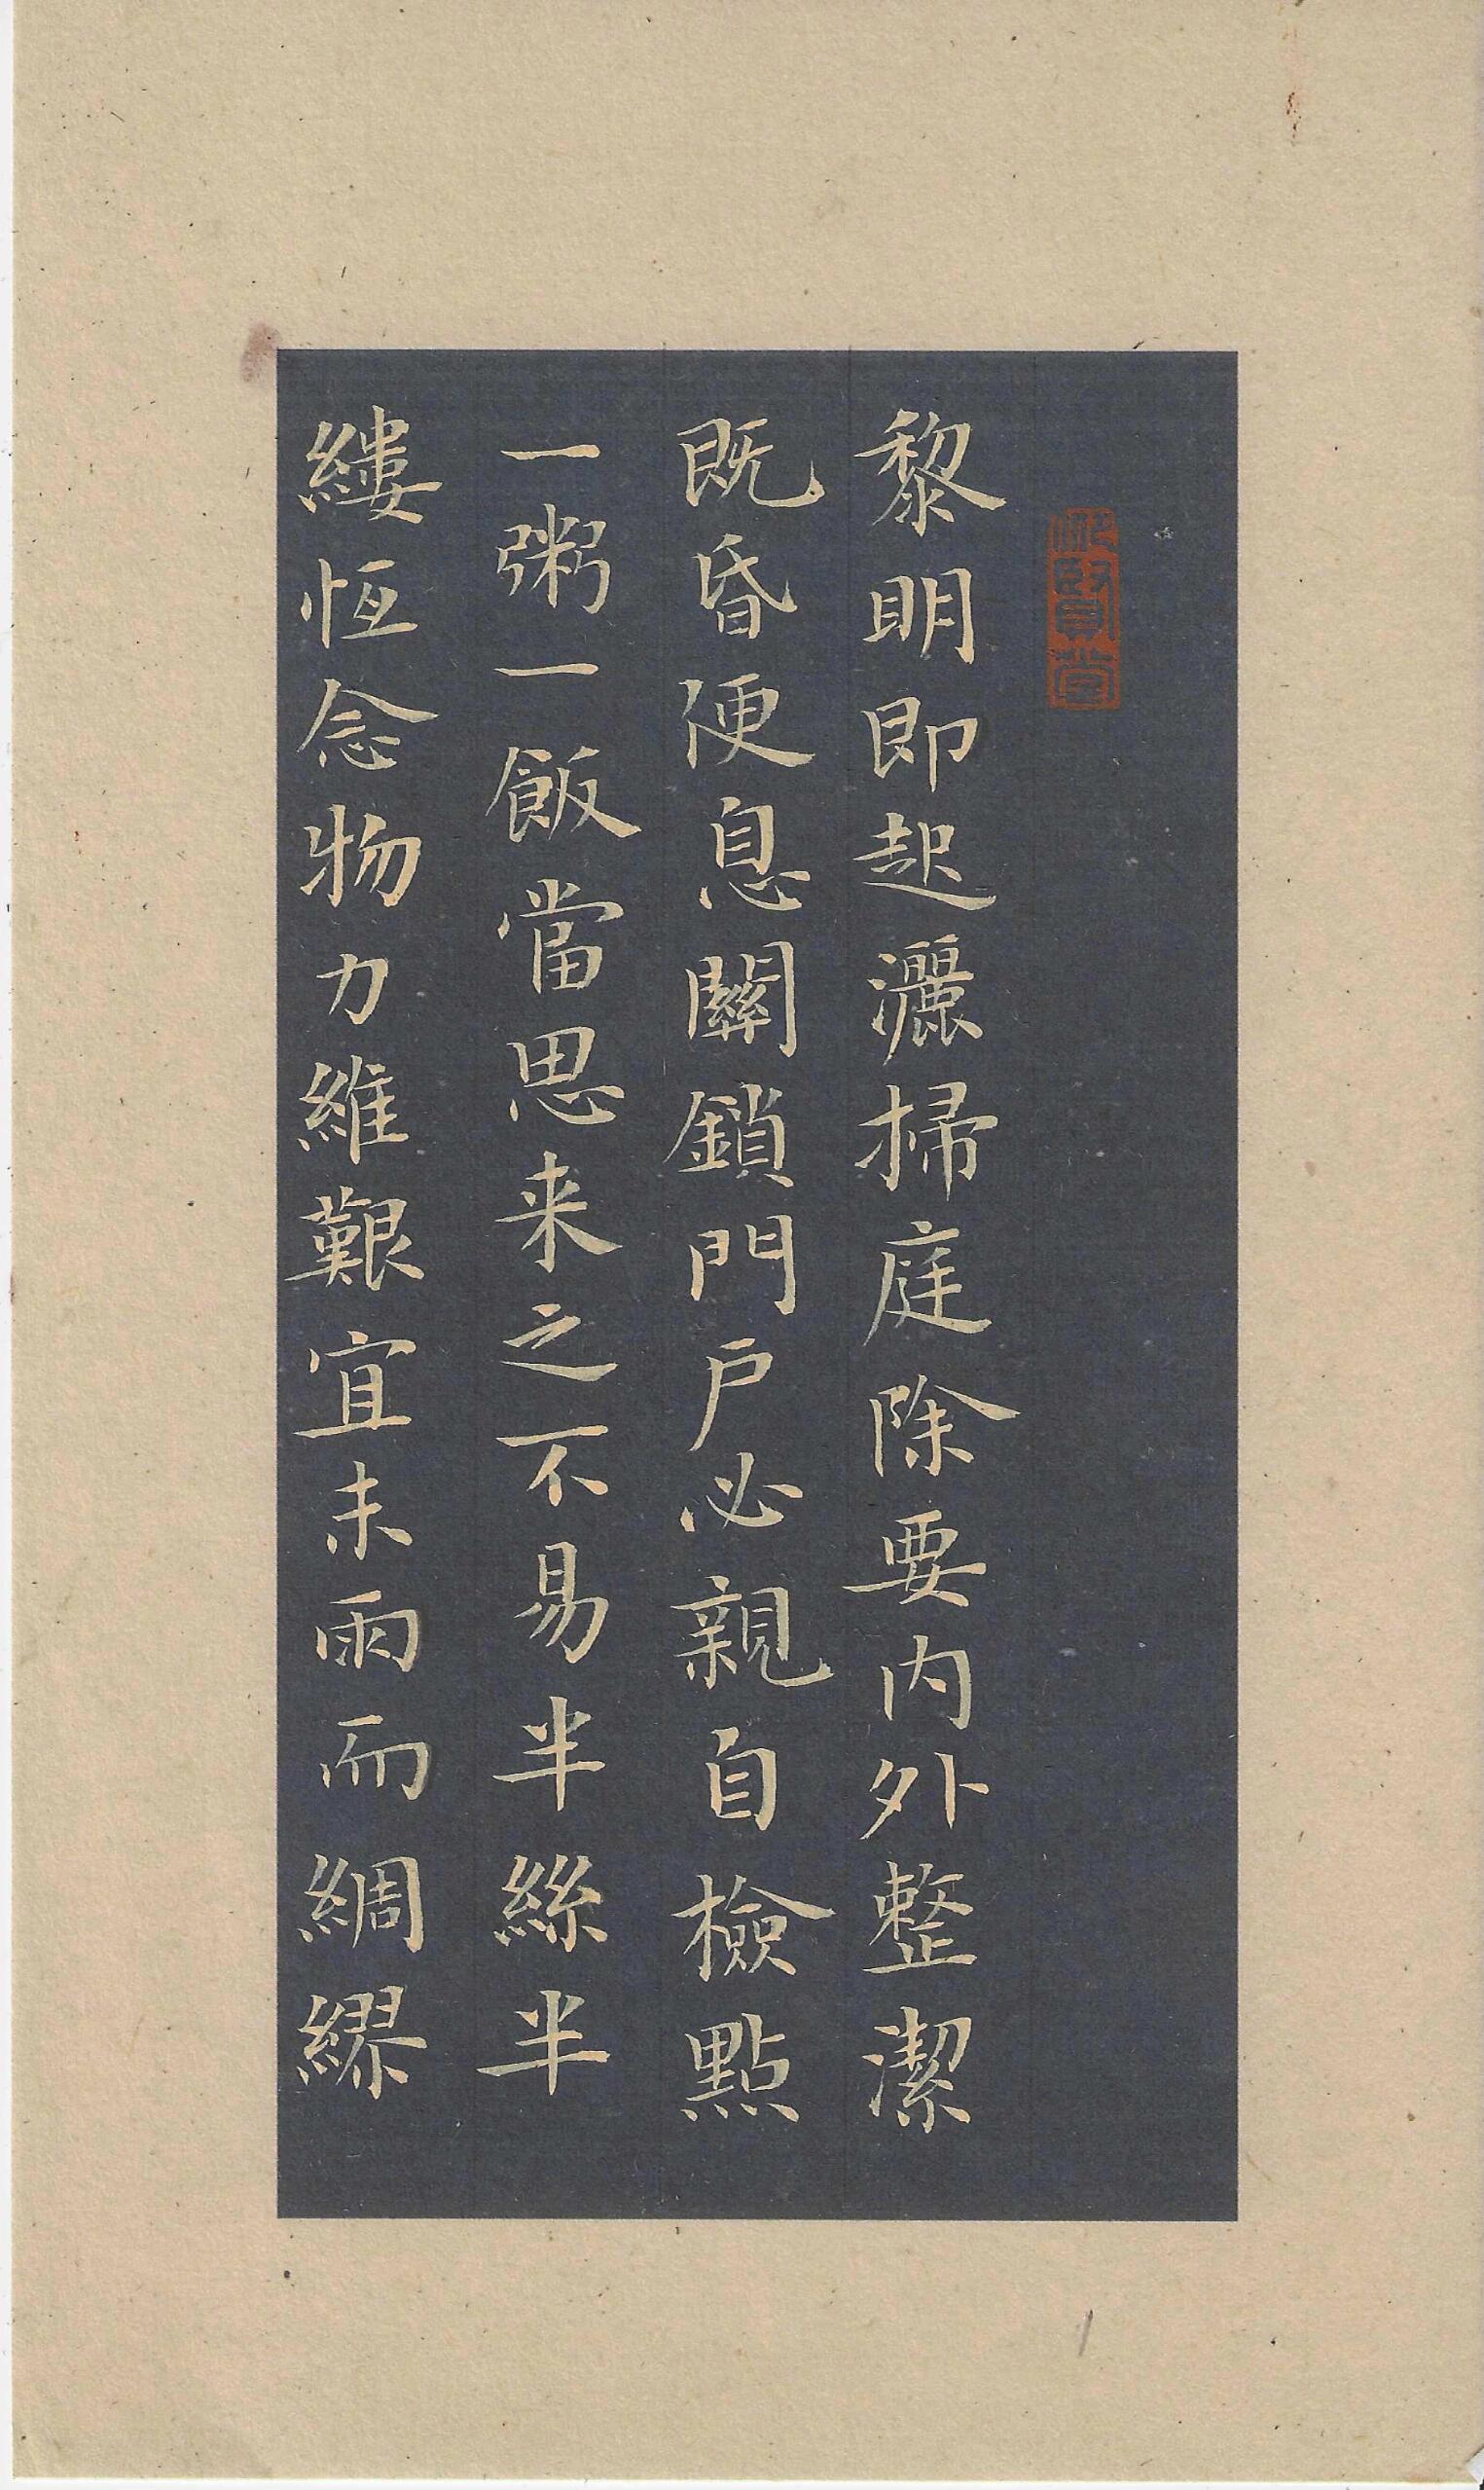 黎明即起灑掃庭除要内外整潔
既昏便息關鎖門戶必親自檢點
一粥一飯當思来之不易半絲半
縷恆念物力維艱宜未雨而綢繆